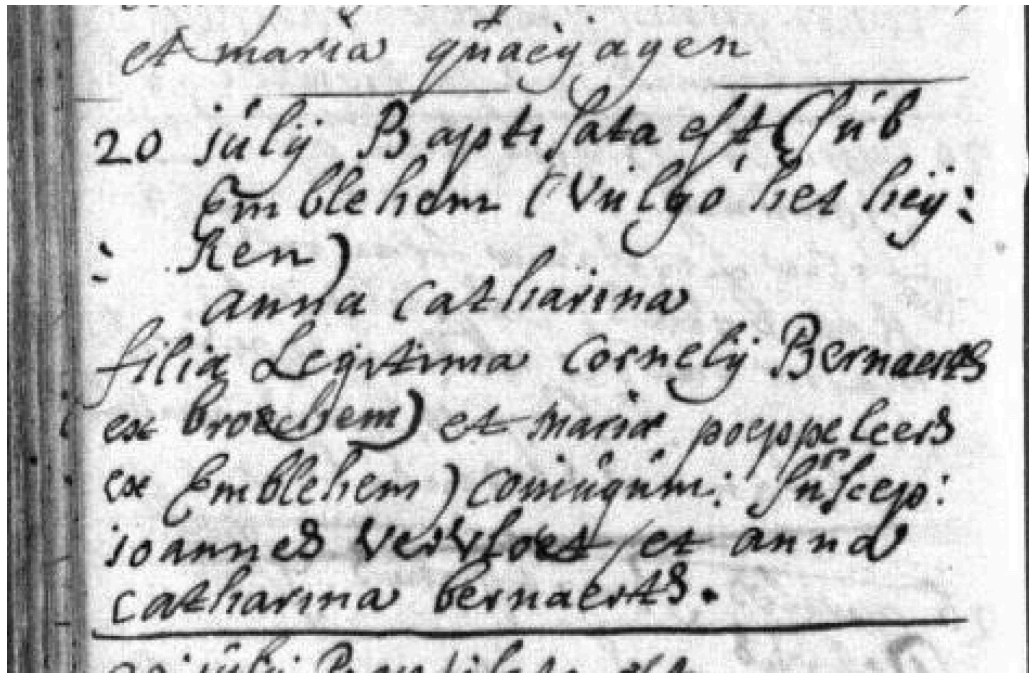 et maria quaeyagen
20 júlij Baptisata est (súb
Emblehem (vúlgó het heij:
: ken)
anna catharina
filia Legitima Cornelij Bernaerts
ex broechem) et mariæ poeppeleers
ex Emblehem) coniúgúm: súscep:
ioannes Vervloet / et anna
catharina bernaerts.
júlij Baptisata est